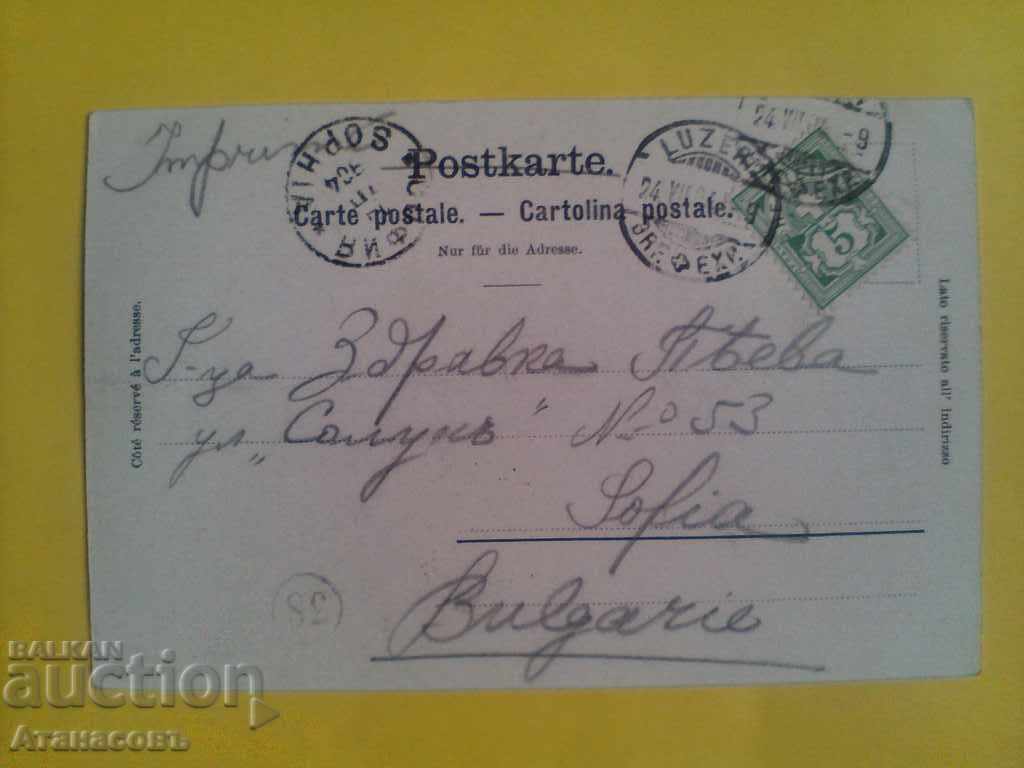 Postkarte.
Carte postale. — Cartolina postale.
Nur für die Adresse.
SOPHIA
LUZERN
BRF. EXP.
5
Côté réservé à l'adresse.
Lato riservato all' indirizzo
Г-ца Здравка Пѣева
ул „Солунъ“ № 53
Sofia
Bulgarie
BALKAN
auction
Атанасовъ